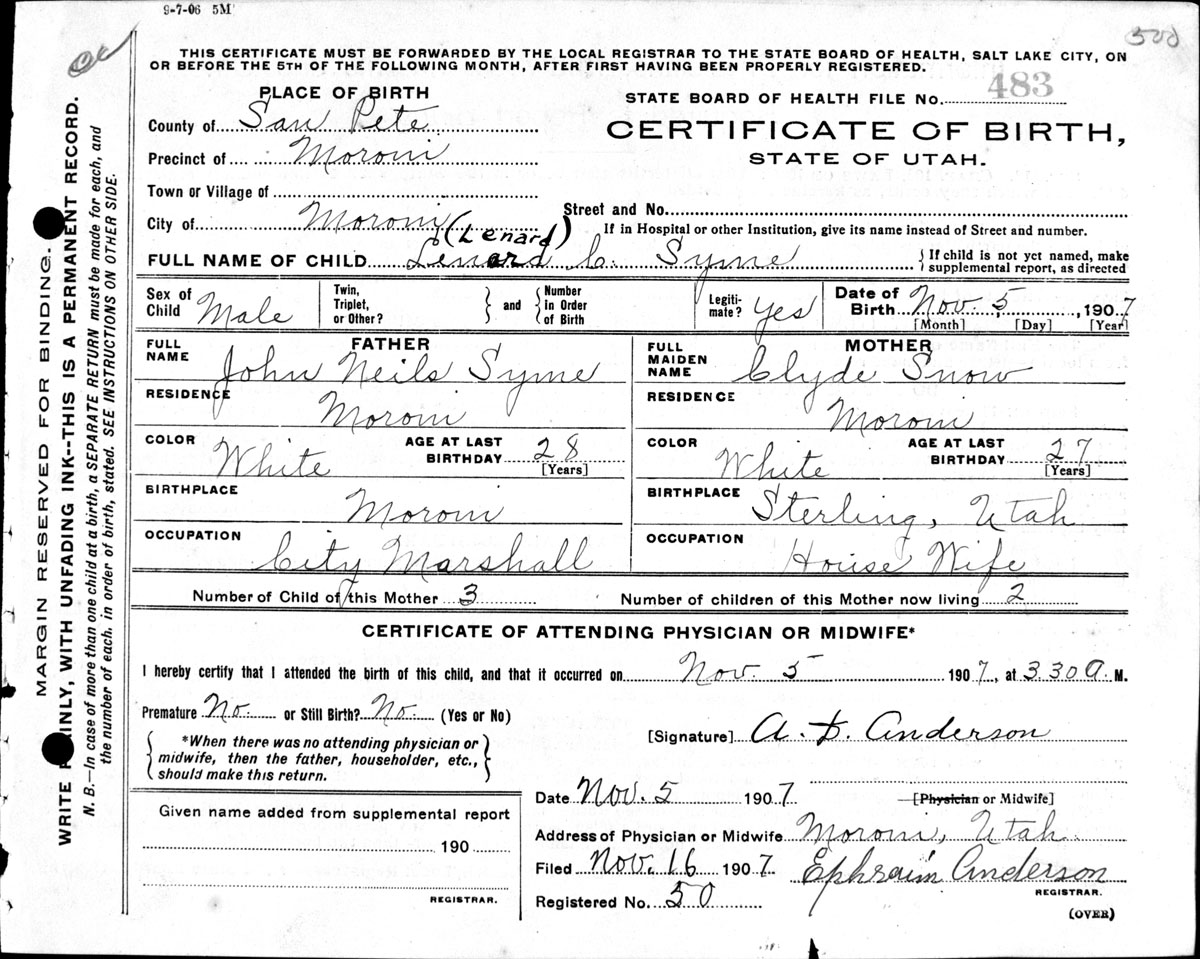 9-7-06 5M
500
THIS CERTIFICATE MUST BE FORWARDED BY THE LOCAL REGISTRAR TO THE STATE BOARD OF HEALTH, SALT LAKE CITY, ON
OR BEFORE THE 5TH OF THE FOLLOWING MONTH, AFTER FIRST HAVING BEEN PROPERLY REGISTERED.
PLACE OF BIRTH
STATE BOARD OF HEALTH FILE No. 483
County of San Pete
CERTIFICATE OF BIRTH,
Precinct of Moroni
STATE OF UTAH.
Town or Village of
City of Moroni
Street and No.
(Lenard)
If in Hospital or other Institution, give its name instead of Street and number.
FULL NAME OF CHILD Lenard C. Syme { If child is not yet named, make
supplemental report, as directed
Sex of Child Male Twin, Triplet, or Other? } and { Number in Order of Birth Legiti-mate? Yes Date of Birth Nov. 5, 1907
[Month] [Day] [Year]
FATHER MOTHER
FULL NAME John Neils Syme FULL MAIDEN NAME Clyde Snow
RESIDENCE Moroni RESIDENCE Moroni
COLOR White AGE AT LAST BIRTHDAY 28 [Years] COLOR White AGE AT LAST BIRTHDAY 27 [Years]
BIRTHPLACE Moroni BIRTHPLACE Sterling, Utah
OCCUPATION City Marshall OCCUPATION House Wife
Number of Child of this Mother 3 Number of children of this Mother now living 2
CERTIFICATE OF ATTENDING PHYSICIAN OR MIDWIFE*
I hereby certify that I attended the birth of this child, and that it occurred on Nov. 5 1907, at 3.30 A. M.
Premature No. or Still Birth? No. (Yes or No)
*When there was no attending physician or
midwife, then the father, householder, etc.,
should make this return.
[Signature] A. D. Anderson
Date Nov. 5 1907 [Physician or Midwife]
Given name added from supplemental report
190
REGISTRAR.
Address of Physician or Midwife Moroni, Utah.
Filed Nov. 16 1907 Ephraim Anderson
REGISTRAR.
Registered No. 50
(OVER)
MARGIN RESERVED FOR BINDING.
WRITE PLAINLY, WITH UNFADING INK--THIS IS A PERMANENT RECORD.
N. B.—In case of more than one child at a birth, a SEPARATE RETURN must be made for each, and
the number of each, in order of birth, stated. SEE INSTRUCTIONS ON OTHER SIDE.